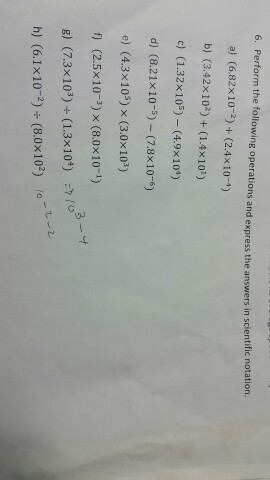 6. Perform the following operations and express the answers in scientific notation.
a) (6.82x10⁻²) + (2.4x10⁻⁴)
b) (3.42x10²) + (1.4x10¹)
c) (1.32x10⁵) − (4.9x10⁴)
d) (8.21x10⁻⁵) − (7.8x10⁻⁶)
e) (4.3x10⁵) × (3.0x10³)
f) (2.5x10⁻³) × (8.0x10⁻¹)
g) (7.3x10³) ÷ (1.3x10⁴) => 10³⁻⁴
h) (6.1x10⁻²) ÷ (8.0x10²) 10⁻²⁻²